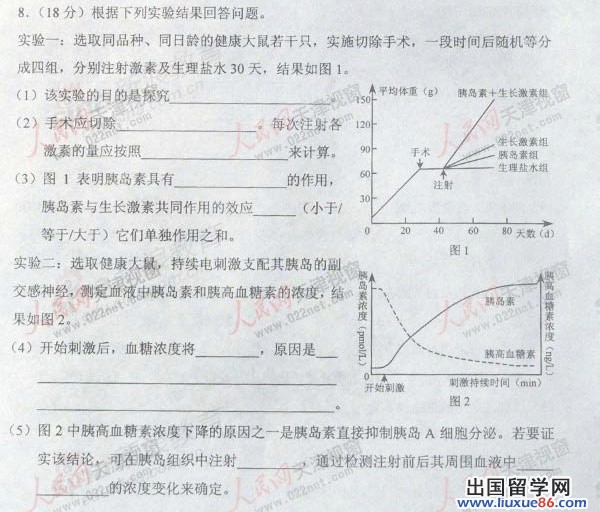 8.（18 分）根据下列实验结果回答问题。
实验一：选取同品种、同日龄的健康大鼠若干只，实施切除手术，一段时间后随机等分
成四组，分别注射激素及生理盐水 30 天，结果如图 1。
（1）该实验的目的是探究
。
（2）手术应切除
。每次注射各
激素的量应按照
来计算。
（3）图 1 表明胰岛素具有
的作用，
胰岛素与生长激素共同作用的效应
（小于/
等于/大于）它们单独作用之和。
平均体重（g）
胰岛素＋生长激素组
150
120
90
60
30
0
手术
注射
生长激素组
胰岛素组
生理盐水组
20
40
60
80
天数（d）
图 1
实验二：选取健康大鼠，持续电刺激支配其胰岛的副
交感神经，测定血液中胰岛素和胰高血糖素的浓度，结
果如图 2。
（4）开始刺激后，血糖浓度将
，原因是
。
胰岛素浓度（pmol/L）
胰高血糖素浓度（ng/L）
胰岛素
胰高血糖素
0
开始刺激
刺激持续时间（min）
图 2
（5）图 2 中胰高血糖素浓度下降的原因之一是胰岛素直接抑制胰岛 A 细胞分泌。若要证
实该结论，可在胰岛组织中注射
，通过检测注射前后其周围血液中
的浓度变化来确定。
人民网天津视窗
www.022net.com
出国留学网
www.liuxue86.com